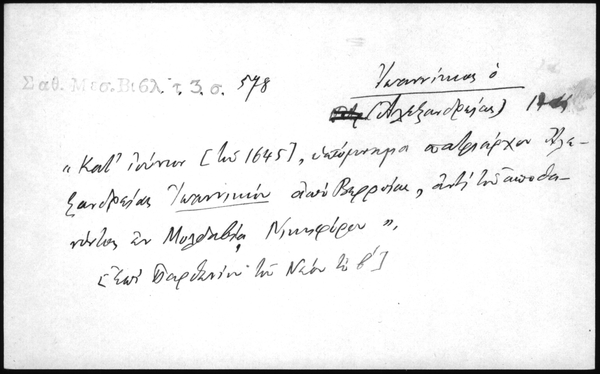 Σαθ. Μεσ. Βιβλ. τ. 3. σ. 578
Ἰωαννίκιος ὁ
(Ἀλεξανδρείας)
"Κατ' ἰούνιον [τοῦ 1645], ὑπόμνημα πατριάρχου Ἀλε-
ξανδρείας Ἰωαννικίου ἀπὸ Βερροίας, ἀντὶ τοῦ ἀποθα-
νόντος ἐν Μολδαβίᾳ Νικηφόρου",
[Ἐπὶ Παρθενίου τοῦ Νέου τοῦ β']